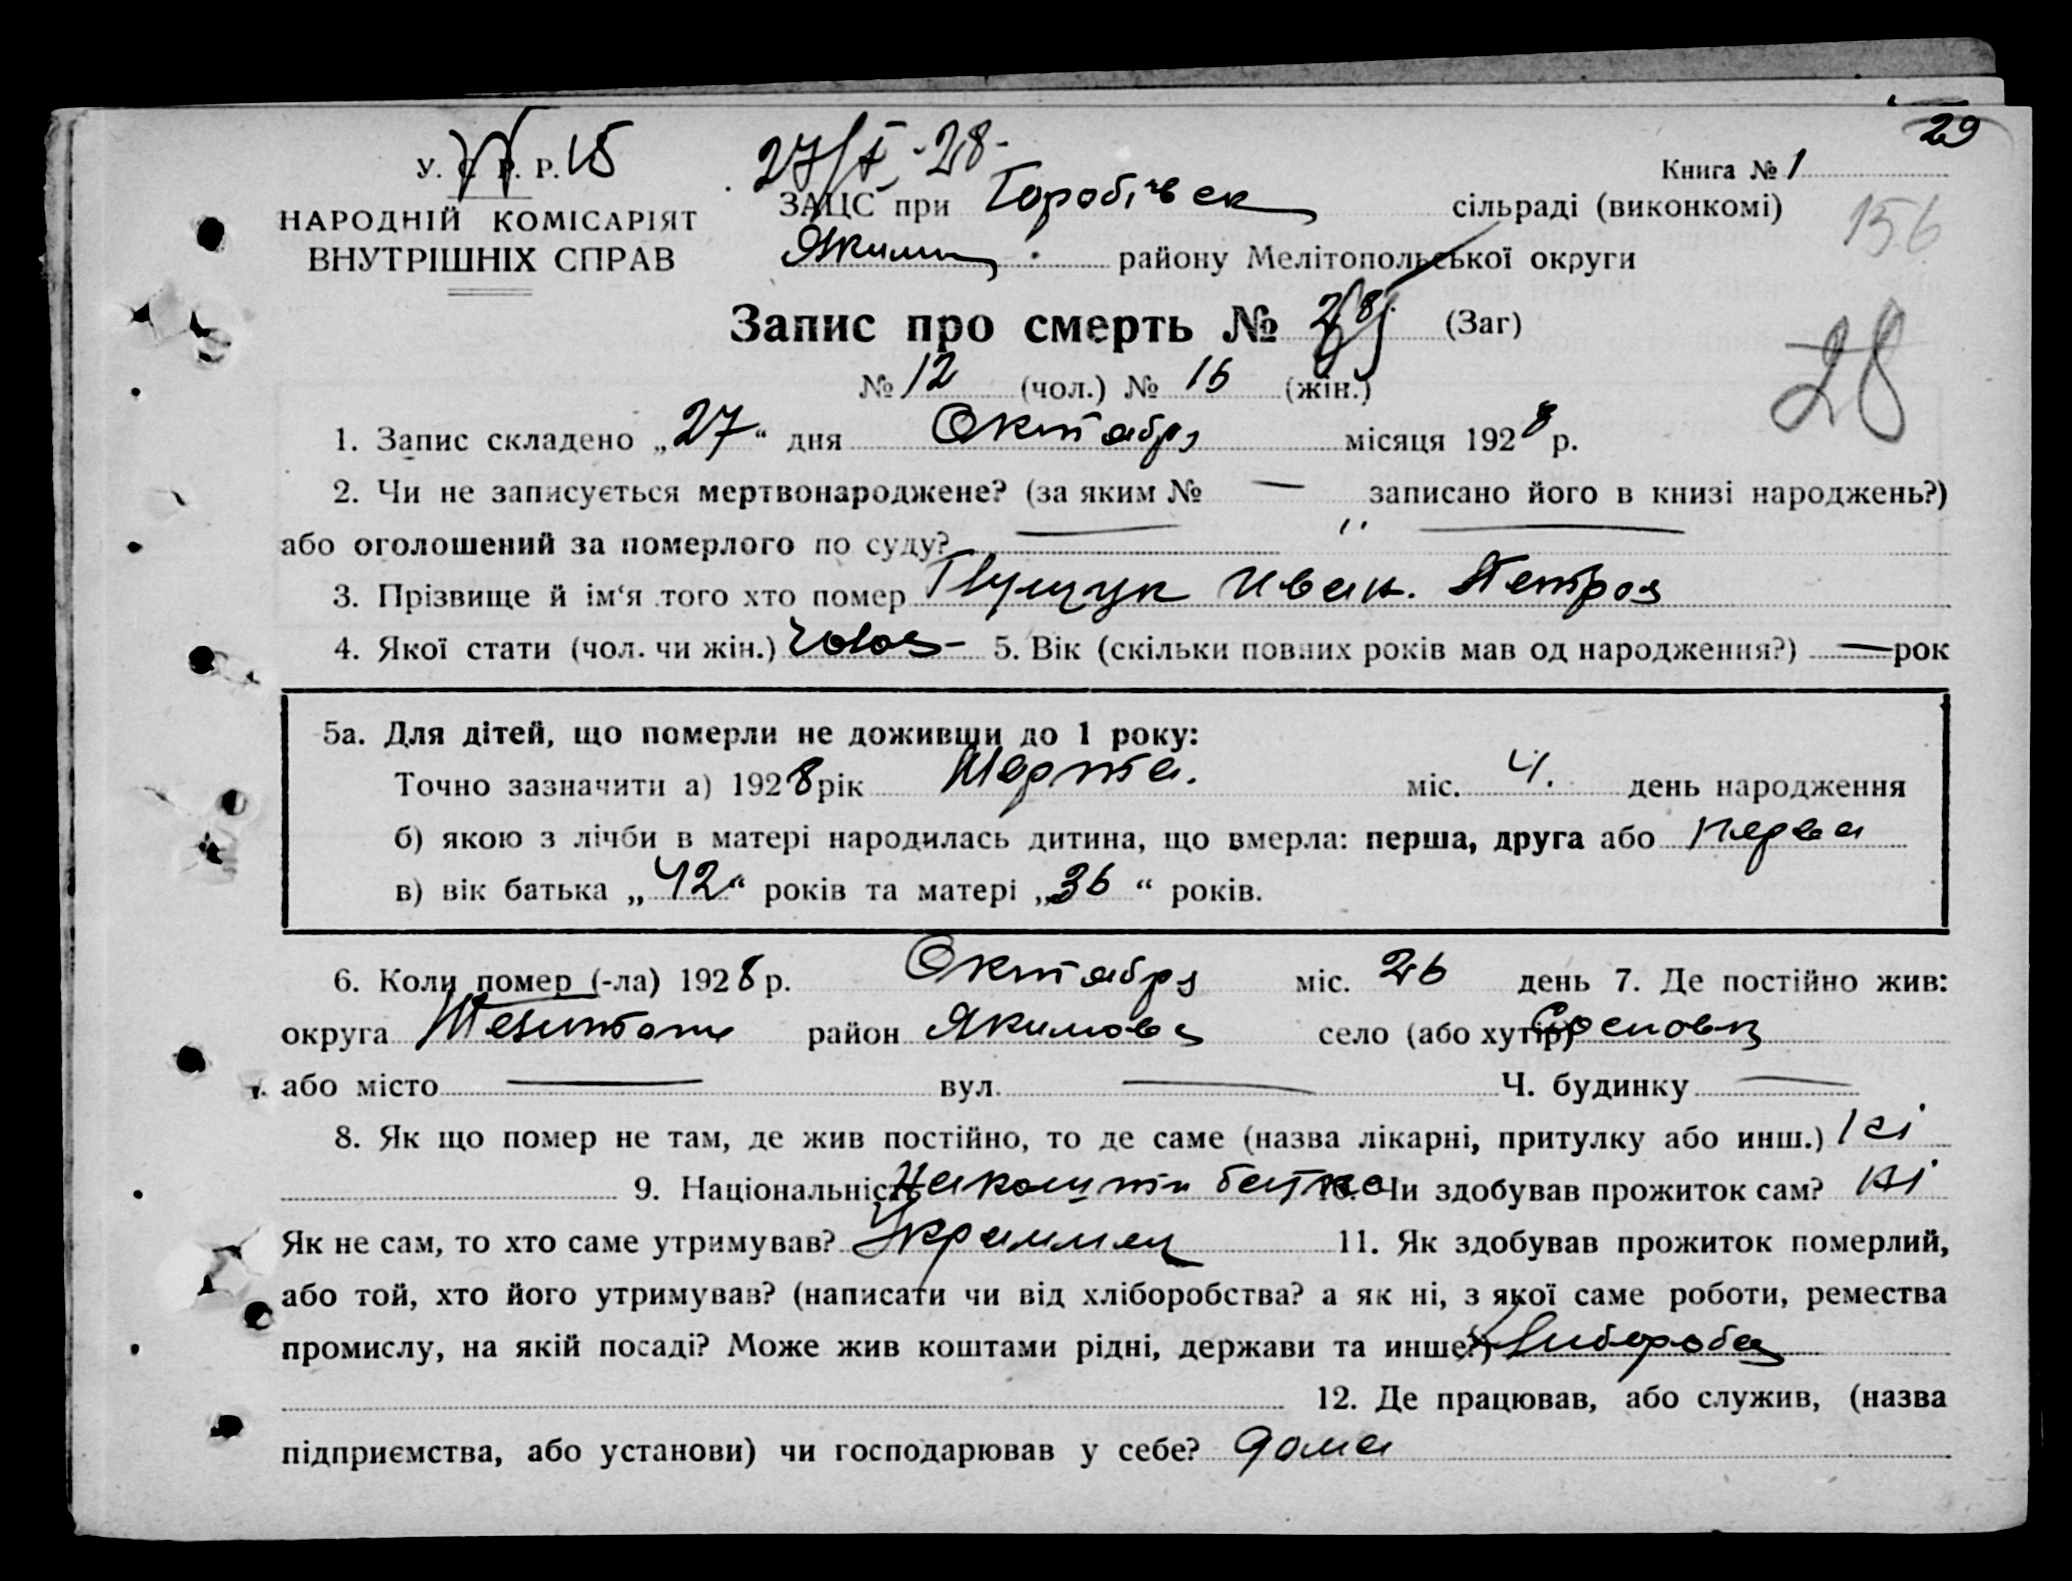 29
У. С. Р. Р. 15 27/X-28- Книга № 1
НАРОДНІЙ КОМІСАРІЯТ ЗАЦС при Горобівск сільраді (виконкомі) 156
ВНУТРІШНІХ СПРАВ Яким району Мелітопольської округи
Запис про смерть № 28 (Заг) 28
№ 12 (чол.) № 16 (жін.)
1. Запис складено „27“ дня Октября місяця 1928 р.
2. Чи не записується мертвонароджене? (за яким № — записано його в книзі народжень?)
або оголошений за померлого по суду? — " —
3. Прізвище й ім‘я того хто помер Иван. Петров
4. Якої стати (чол. чи жін.) чолов- 5. Вік (скільки повних років мав од народження?) — рок
5а. Для дітей, що померли не доживши до 1 року:
Точно зазначити а) 1928 рік Марта. міс. 4. день народження
б) якою з лічби в матері народилась дитина, що вмерла: перша, друга або перва
в) вік батька „42“ років та матері „36“ років.
6. Коли помер (-ла) 1928 р. Октября міс. 26 день 7. Де постійно жив:
округа район Якимовс село (або хутір)
або місто — вул. — Ч. будинку —
8. Як що помер не там, де жив постійно, то де саме (назва лікарні, притулку або инш.) ні
9. Національність на кошти батка 10. Чи здобував прожиток сам? ні
Як не сам, то хто саме утримував? Украинец 11. Як здобував прожиток померлий,
або той, хто його утримував? (написати чи від хліборобства? а як ні, з якої саме роботи, ремества
промислу, на якій посаді? Може жив коштами рідні, держави та инше?) Хлибороба
12. Де працював, або служив, (назва
підприємства, або установи) чи господарював у себе? дома